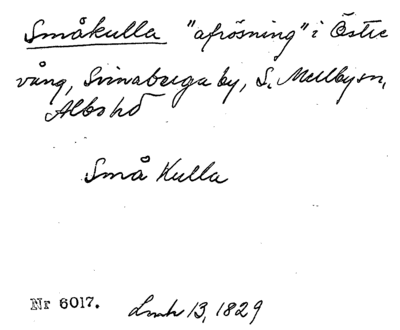 Småkulla "afrösning" i Östre
vång, Svinaberga by, S. Mellby sn,
Albo hd
Små Kulla
Nr 6017. Lmh 13, 1829